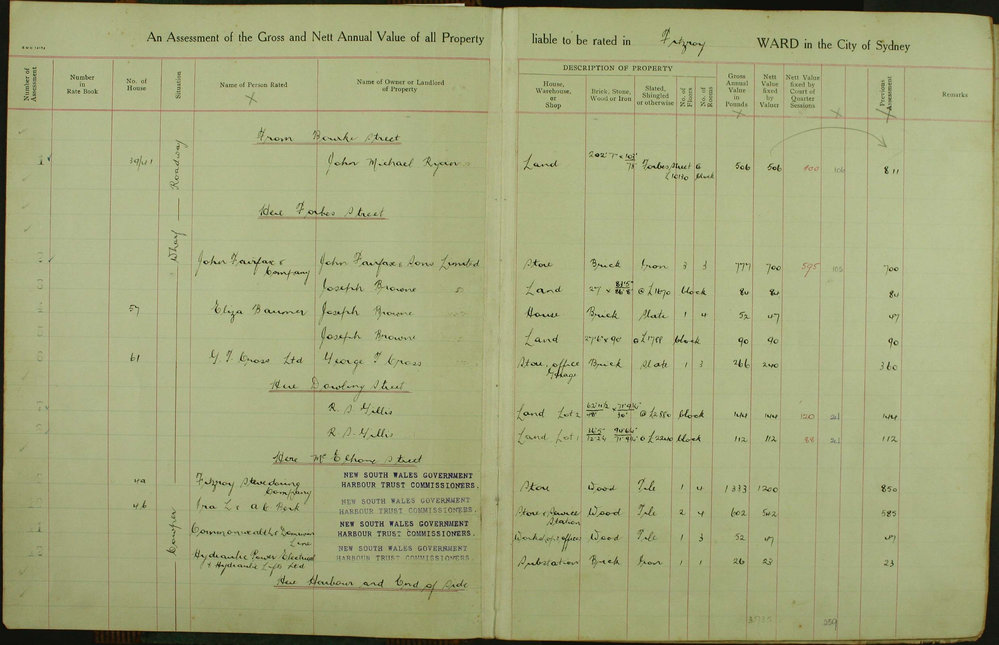 An Assessment of the Gross and Nett Annual Value of all Property liable to be rated in Fitzroy WARD in the City of Sydney
DESCRIPTION OF PROPERTY
Number of Assessment
Number in Rate Book
No. of House
Situation
Name of Person Rated
Name of Owner or Landlord of Property
House, Warehouse, or Shop
Brick, Stone, Wood or Iron
Slated, Shingled or otherwise
No. of Floors
No. of Rooms
Gross Annual Value in Pounds
Nett Value fixed by Valuer
Nett Value fixed by Court of Quarter Sessions
Previous Assessment
Remarks
Cowper Wharf Roadway
From Bourke Street
1 39/41 John Michael Ryan Land 202' 7" x 102'/78' Forbes Street @ £10130 block 506 506 400 106 811
Here Forbes Street
John Fairfax & Company John Fairfax & Sons Limited Store Brick Iron 3 3 777 700 595 105 700
Joseph Browne Land 27 x @ £1670 block 84 84 84
57 Eliza Baumer Joseph Browne House Brick Slate 1 4 52 47 47
Joseph Browne Land 27'6" x 90' @ £1788 block 90 90 90
61 G. F. Cross Ltd George F Cross Store, office Garage Brick Slate 1 3 266 240 360
Here Dowling Street
R. S. Gillis Land Lot 2 @ £2880 block 144 144 120 24 144
R. S. Gillis Land Lot 1 @ £2240 block 112 112 88 24 112
Here McElhone Street
4a Fitzroy Stevedoring Company NEW SOUTH WALES GOVERNMENT HARBOUR TRUST COMMISSIONERS. Store Wood Tile 1 4 1333 1200 850
4b Ira L. & A C Berk NEW SOUTH WALES GOVERNMENT HARBOUR TRUST COMMISSIONERS. Store & Service Station Wood Tile 2 4 602 542 585
Commonwealth & Dominion Line NEW SOUTH WALES GOVERNMENT HARBOUR TRUST COMMISSIONERS. Workshop & offices Wood Tile 1 3 52 47 47
Hydraulic Power Electrical & Hydraulic Lifts Ltd NEW SOUTH WALES GOVERNMENT HARBOUR TRUST COMMISSIONERS. Substation Brick Iron 1 1 26 23 23
Here Harbour and End of Side
3735 259